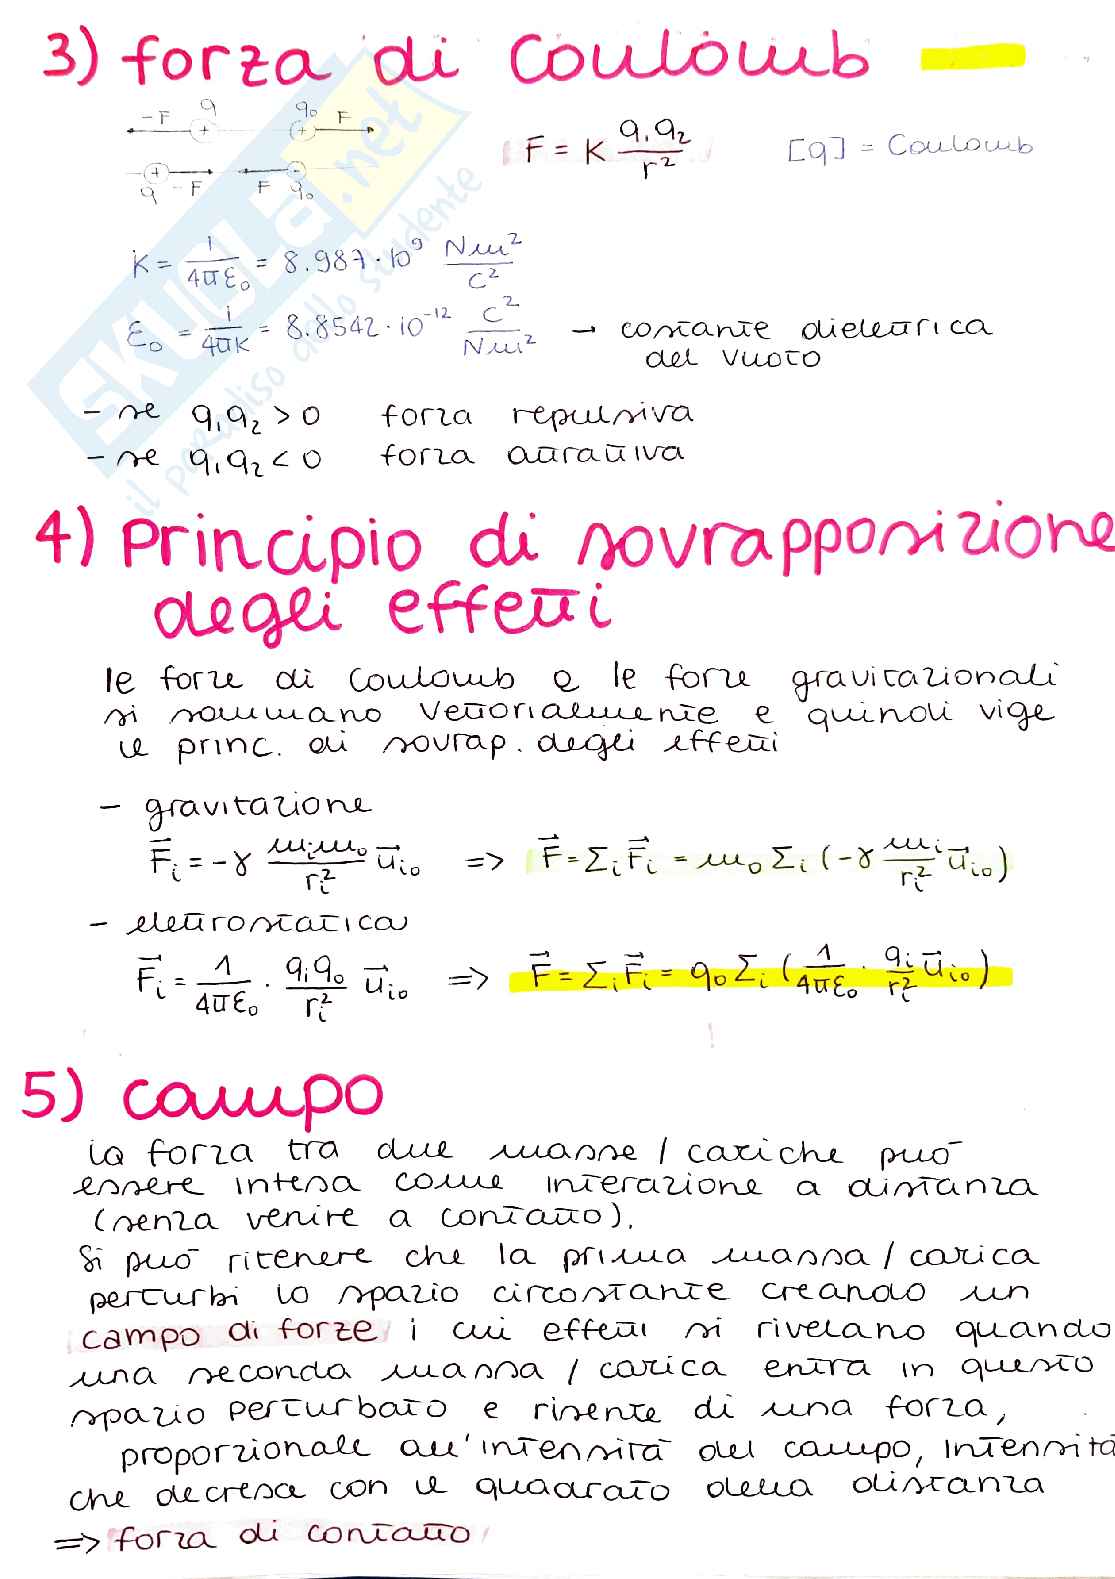 3) forza di Coulomb
-F q q₀ F
F = K q₁q₂/r²
[q] = Coulomb
q -F F q₀
K = 1/4πε₀ = 8.987·10⁹ Nm²/C²
ε₀ = 1/4πK = 8.8542·10⁻¹² C²/Nm² → costante dielettrica
del vuoto
- se q₁q₂ > 0 forza repulsiva
- se q₁q₂ < 0 forza attrattiva
4) Principio di sovrapposizione
degli effetti
le forze di Coulomb e le forze gravitazionali
si sommano vettorialmente e quindi vige
il princ. di sovrap. degli effetti
- gravitazione
F⃗ᵢ = -γ mᵢm₀/rᵢ² u⃗ᵢ₀ => F⃗ = Σᵢ F⃗ᵢ = m₀ Σᵢ (-γ mᵢ/rᵢ² u⃗ᵢ₀)
- elettrostatica
F⃗ᵢ = 1/4πε₀ · qᵢq₀/rᵢ² u⃗ᵢ₀ => F⃗ = Σᵢ F⃗ᵢ = q₀ Σᵢ (1/4πε₀ · qᵢ/rᵢ² u⃗ᵢ₀)
5) campo
la forza tra due masse / cariche può
essere intesa come interazione a distanza
(senza venire a contatto).
Si può ritenere che la prima massa / carica
perturbi lo spazio circostante creando un
campo di forze i cui effetti si rivelano quando
una seconda massa / carica entra in questo
spazio perturbato e risente di una forza,
proporzionale all'intensità del campo, intensità
che decresce con il quadrato della distanza
=> forza di contatto
SKUOLA.net
il paradiso dello studente